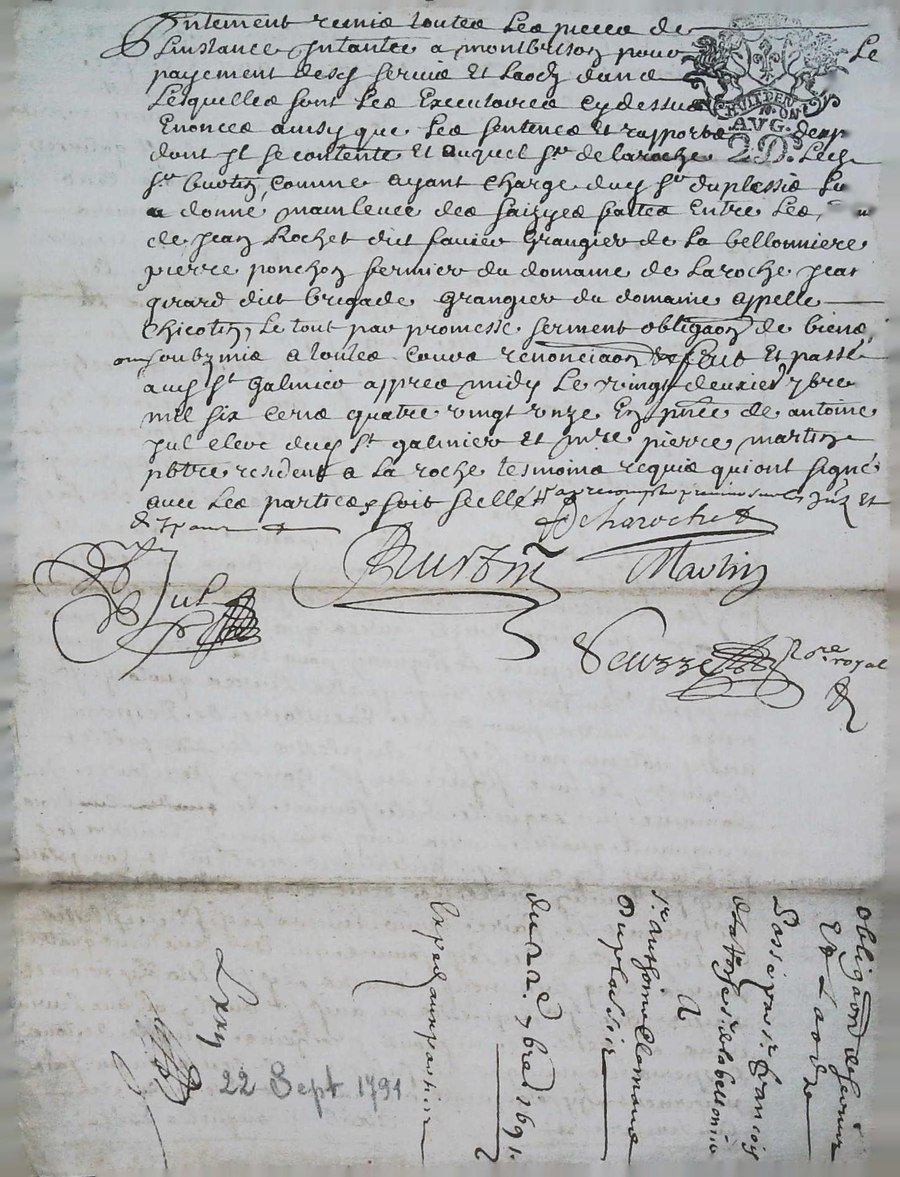 entement remis toutes les pieces de
Linstance Intantée a montbrison pour Le
payement desd servis Et Laodz dans
Lesquelles sont Les Executoires cy dessus
Enonces ainsy que Les sentences Et rapportz
dont Il se contente Et auquel Sr de laroche Led
Sr burtin comme ayant charge dud Sr duplessis
a donné mainlevee des saizyes faites Entre Les
de Jean Rochet dict favier Grangier de La bellonniere
pierre ponchon fermier du domaine de Laroche Jean
girard dict brigade grangier du domaine appelle
Chicotin, Le tout par promesse serment obligaon de biens
soubzmis a toutes cours renonciaon fait Et passé
aud St Galmier appres midy Le vingt deuxie 7bre
mil six cens quatre vingt onze En pnce de antoine
Jul eleve dud St galmier Et mre pierre martin
pbtre resident a La roche tesmoins requis qui ont signé
avec Les parties soit scellé Jul Et
DeLaroche
Burtin
Martin
Jul
Nore royal
RIOM
AVG.
2.D.
obligaon de servis
Et Laodz
passé par Sr francois
de la Roche Sr de la bellonnie
A
Sr anthoine Clomand
Duplessis
du 22e 7bre 1691.
Exped aux parties
22 Sept 1791